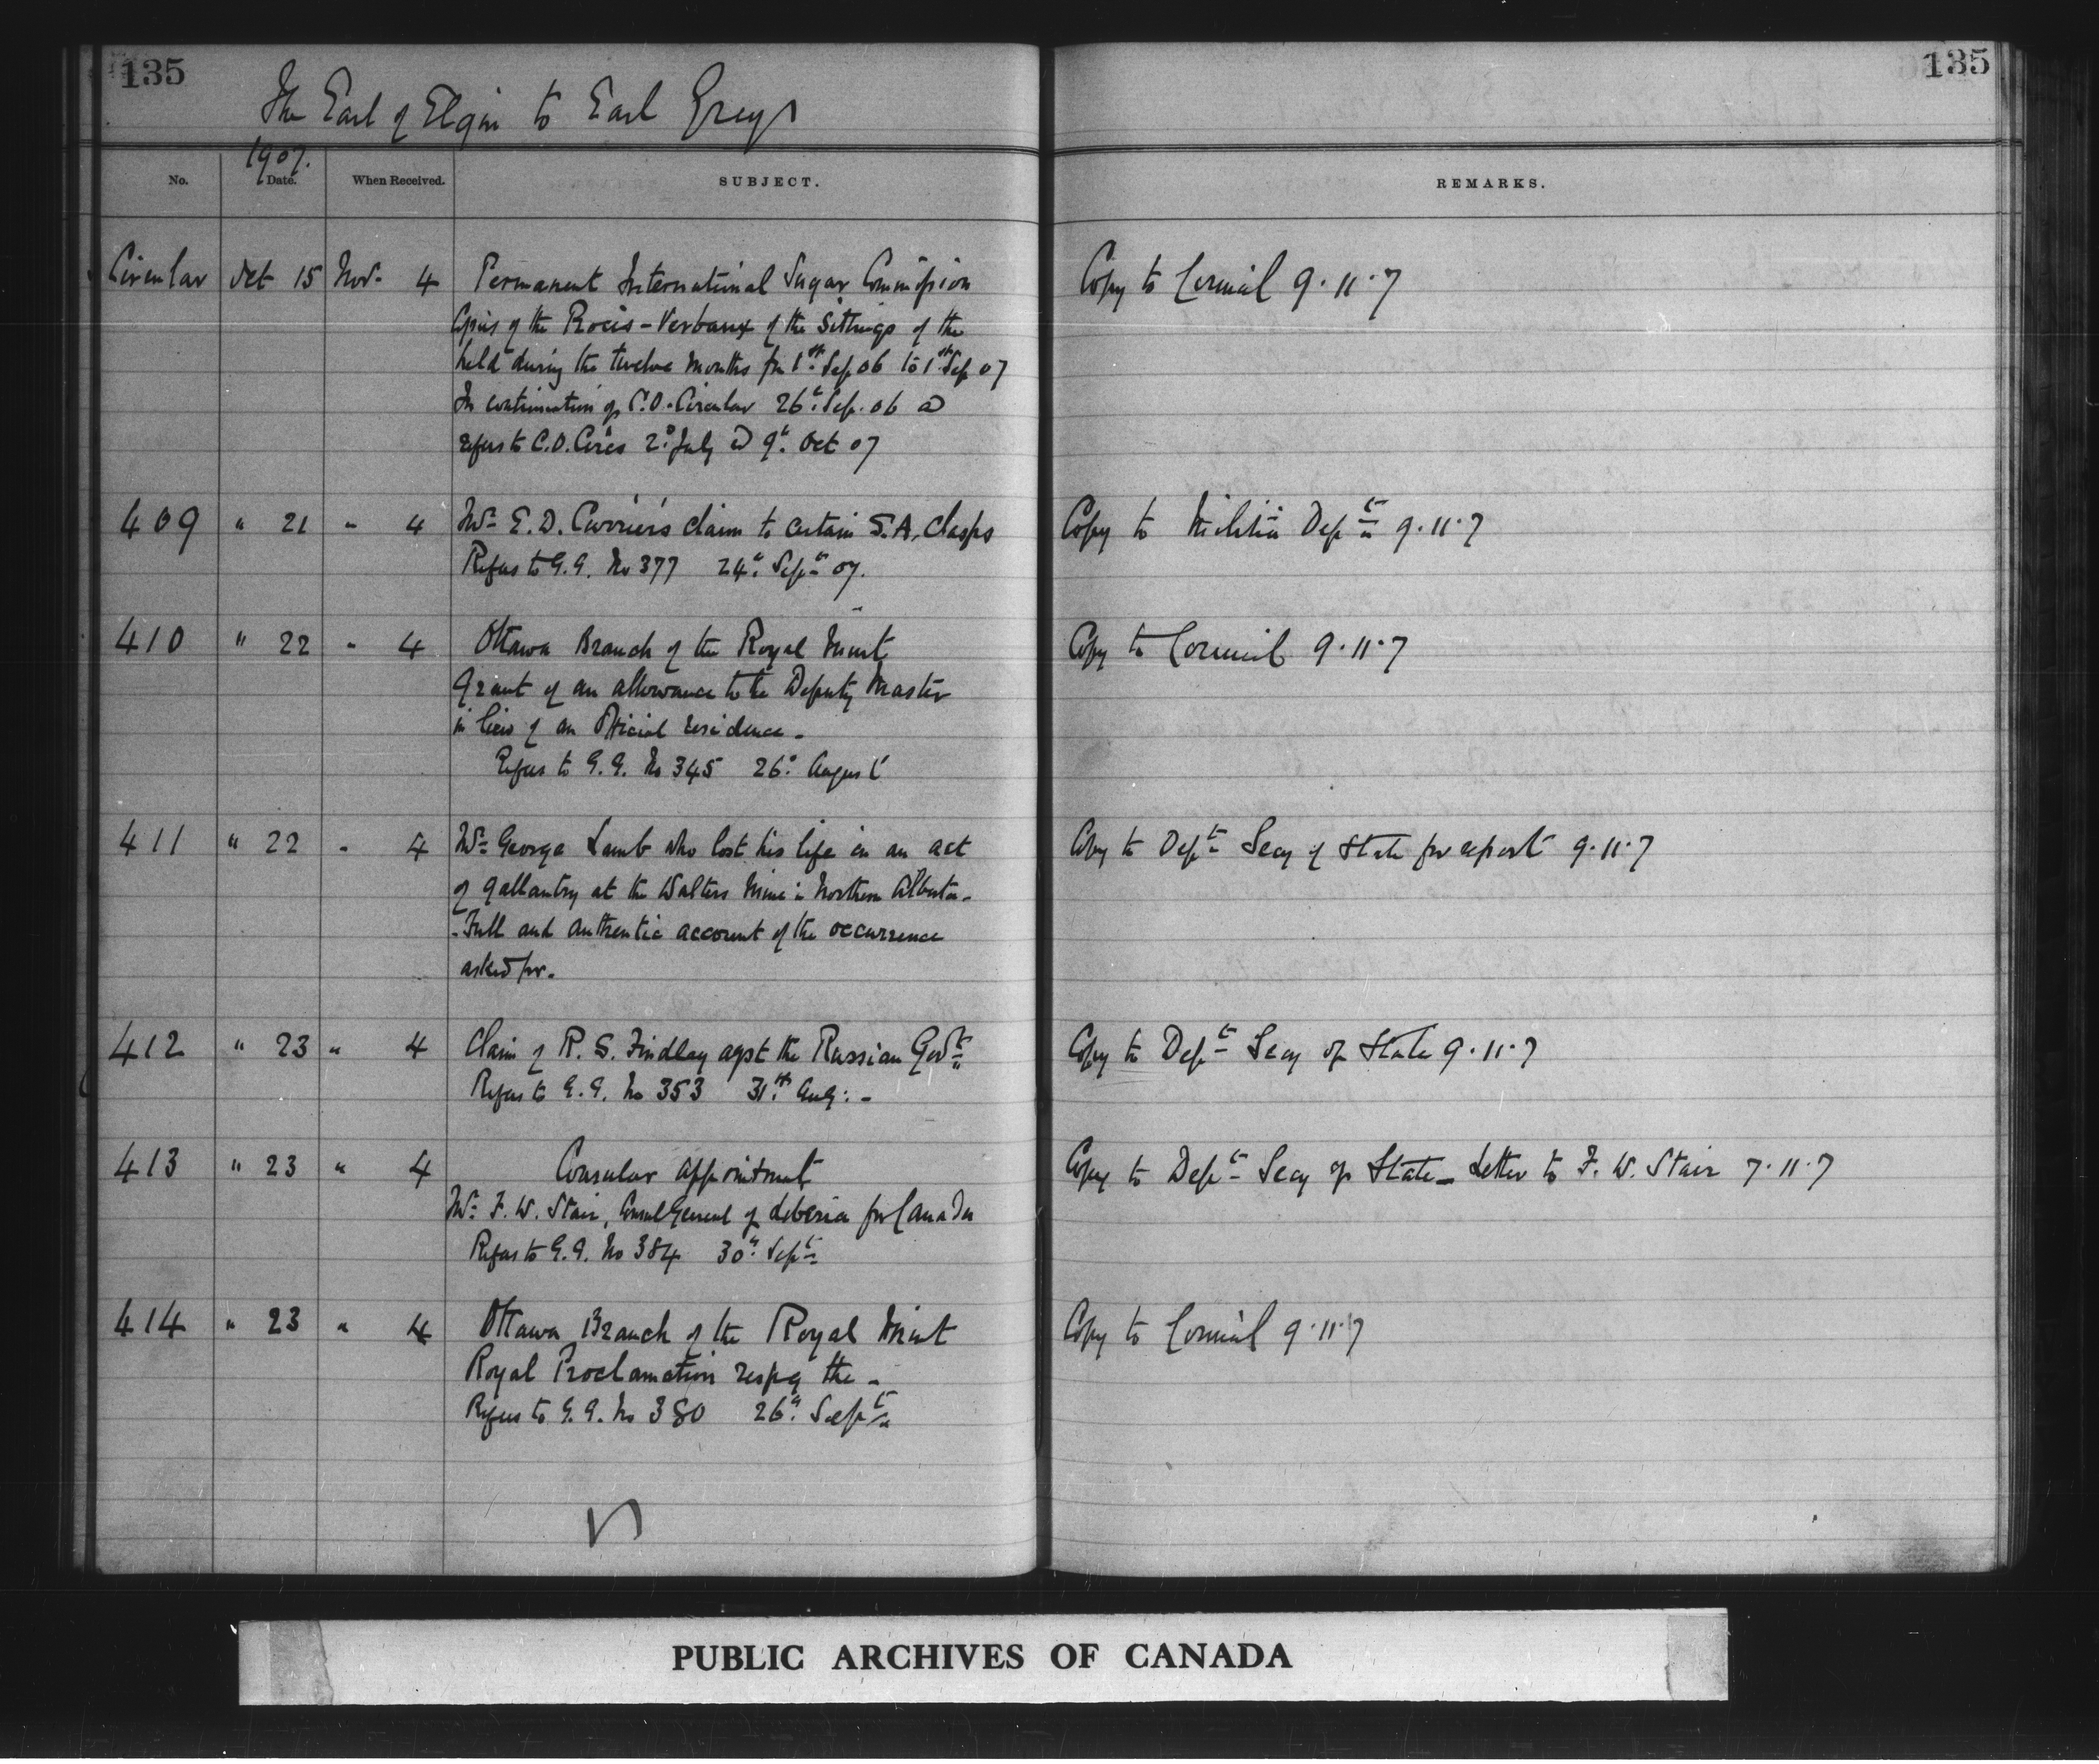 135
135
The Earl of Elgin to Earl Grey
1907.
No. Date. When Received. SUBJECT. REMARKS.
Circular Oct 15 Nov. 4 Permanent International Sugar Commission Copy to Council 9.11.7
Copies of the Procès-Verbaux of the Sittings of the
held during the twelve months fm 1st Sep 06 to 1st Sep 07
In continuation of C.O. Circular 26th Sep. 06 &
refers to C.O. Circs 2d July & 9th Oct 07
409 " 21 " 4 Mr E. D. Carrier's claim to certain S.A. Clasps Copy to Militia Dept 9.11.7
Refers to G.G. No 377 24th Sept 07.
410 " 22 " 4 Ottawa Branch of the Royal Mint Copy to Council 9.11.7
Grant of an allowance to the Deputy Master
in lieu of an Official residence -
Refers to G.G. No 345 26th August
411 " 22 " 4 Mr George Lamb who lost his life in an act Copy to Dept Secy of State for report 9.11.7
of gallantry at the Walters Mine in Northern Alberta -
- Full and authentic account of the occurrence
asked for.
412 " 23 " 4 Claim of R. S. Findlay agst the Russian Govt Copy to Dept Secy of State 9.11.7
Refers to G.G. No 353 31st Aug: -
413 " 23 " 4 Consular Appointment Copy to Dept Secy of State - Letter to F. W. Stair 7.11.7
Mr F. W. Stair, Consul General of Liberia for Canada
Refers to G.G. No 384 30th Sept
414 " 23 " 4 Ottawa Branch of the Royal Mint Copy to Council 9.11.7
Royal Proclamation respg the -
Refers to G.G. No 380 26th Sept
PUBLIC ARCHIVES OF CANADA